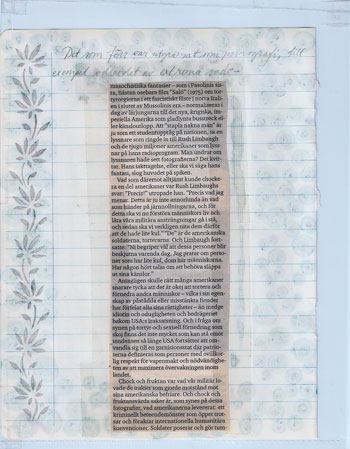 Det som förr var utpressat som pornografi, till
exempel
masochistiska fantasier – som i Pasolinis sis-
ta, nästan osebara film "Salò" (1975) om tor-
tyrorgierna i ett fascistiskt fäste i norra Itali-
en i slutet av Mussolinis era – normaliseras i
dag av lärjungarna till det nya, krigiska, im-
periella Amerika som gladlynta busstreck el-
ler känsloutlopp. Att "stapla nakna män" är
ju som ett studentupptåg på nationen, sa en
lyssnare som ringde in till Rush Limbaugh
och de tjugo miljoner amerikaner som lyss-
nar på hans radioprogram. Man undrar om
lyssnaren hade sett fotografierna? Det kvit-
tar. Hans iakttagelse, eller ska vi säga hans
fantasi, slog huvudet på spiken.
Vad som däremot alltjämt kunde chocke-
ra en del amerikaner var Rush Limbaughs
svar: "Precis!" utropade han. "Precis vad jag
menar. Detta är ju inte annorlunda än vad
som händer på
detta ska vi nu förstöra människors liv och
lära våra militära ansträngningar gå i stå,
och sedan ska vi verkligen nita dem därför
att de hade lite kul." "De" är de amerikanska
soldaterna, torterarna. Och Limbaugh fort-
satte: "Ni begriper väl att dessa personer blir
beskjutna varenda dag. Jag pratar om perso-
ner som har lite kul, dom här människorna.
Har någon hört talas om att behöva släppa
ut sina känslor."
Antagligen skulle rätt många amerikaner
snarare tycka att det är okej att tortera och
förnedra andra människor – vilka i sin egen-
skap av påstådda eller misstänkta fiender
har förfelat alla sina rättigheter – än medge
idiotin och odugligheten och bedrägeriet
bakom USA:s Iraksatsning. Och i fråga om
synen på tortyr och sexuell förnedring som
skoj finns det inte mycket som kan stå emot
tendensen så länge USA fortsätter att om-
vandla sig till en garnisonsstat där patrio-
terna definieras som personer med ovillkor-
lig respekt för vapenmakt och nödvändighe-
ten av att maximera övervakningen inom
landet.
Chock och fruktan var vad vår militär lo-
vade de irakier som gjorde motstånd mot
sina amerikanska befriare. Och chock och
fruktansvärda saker är, som synes på dessa
fotografier, vad amerikanerna levererat: ett
kriminellt beteendemönster som öppet trot-
sar och föraktar internationella humanitära
konventioner. Soldater poserar och gör tum-